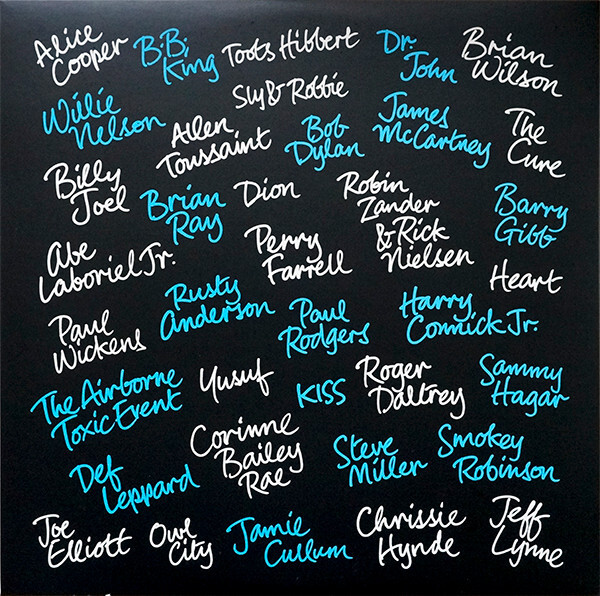 Alice
Cooper
B.B.
King
Toots Hibbert
Dr.
John
Brian
Wilson
Sly & Robbie
Willie
Nelson
Allen
Toussaint
Bob
Dylan
James
McCartney
The
Cure
Billy
Joel
Brian
Ray
Dion
Robin
Zander
& Rick
Nielsen
Barry
Gibb
Abe
Laboriel Jr.
Perry
Farrell
Heart
Paul
Wickens
Rusty
Anderson
Paul
Rodgers
Harry
Connick Jr.
The Airborne
Toxic Event
Yusuf
KISS
Roger
Daltrey
Sammy
Hagar
Def
Leppard
Corinne
Bailey
Rae
Steve
Miller
Smokey
Robinson
Joe
Elliott
Owl
City
Jamie
Cullum
Chrissie
Hynde
Jeff
Lynne